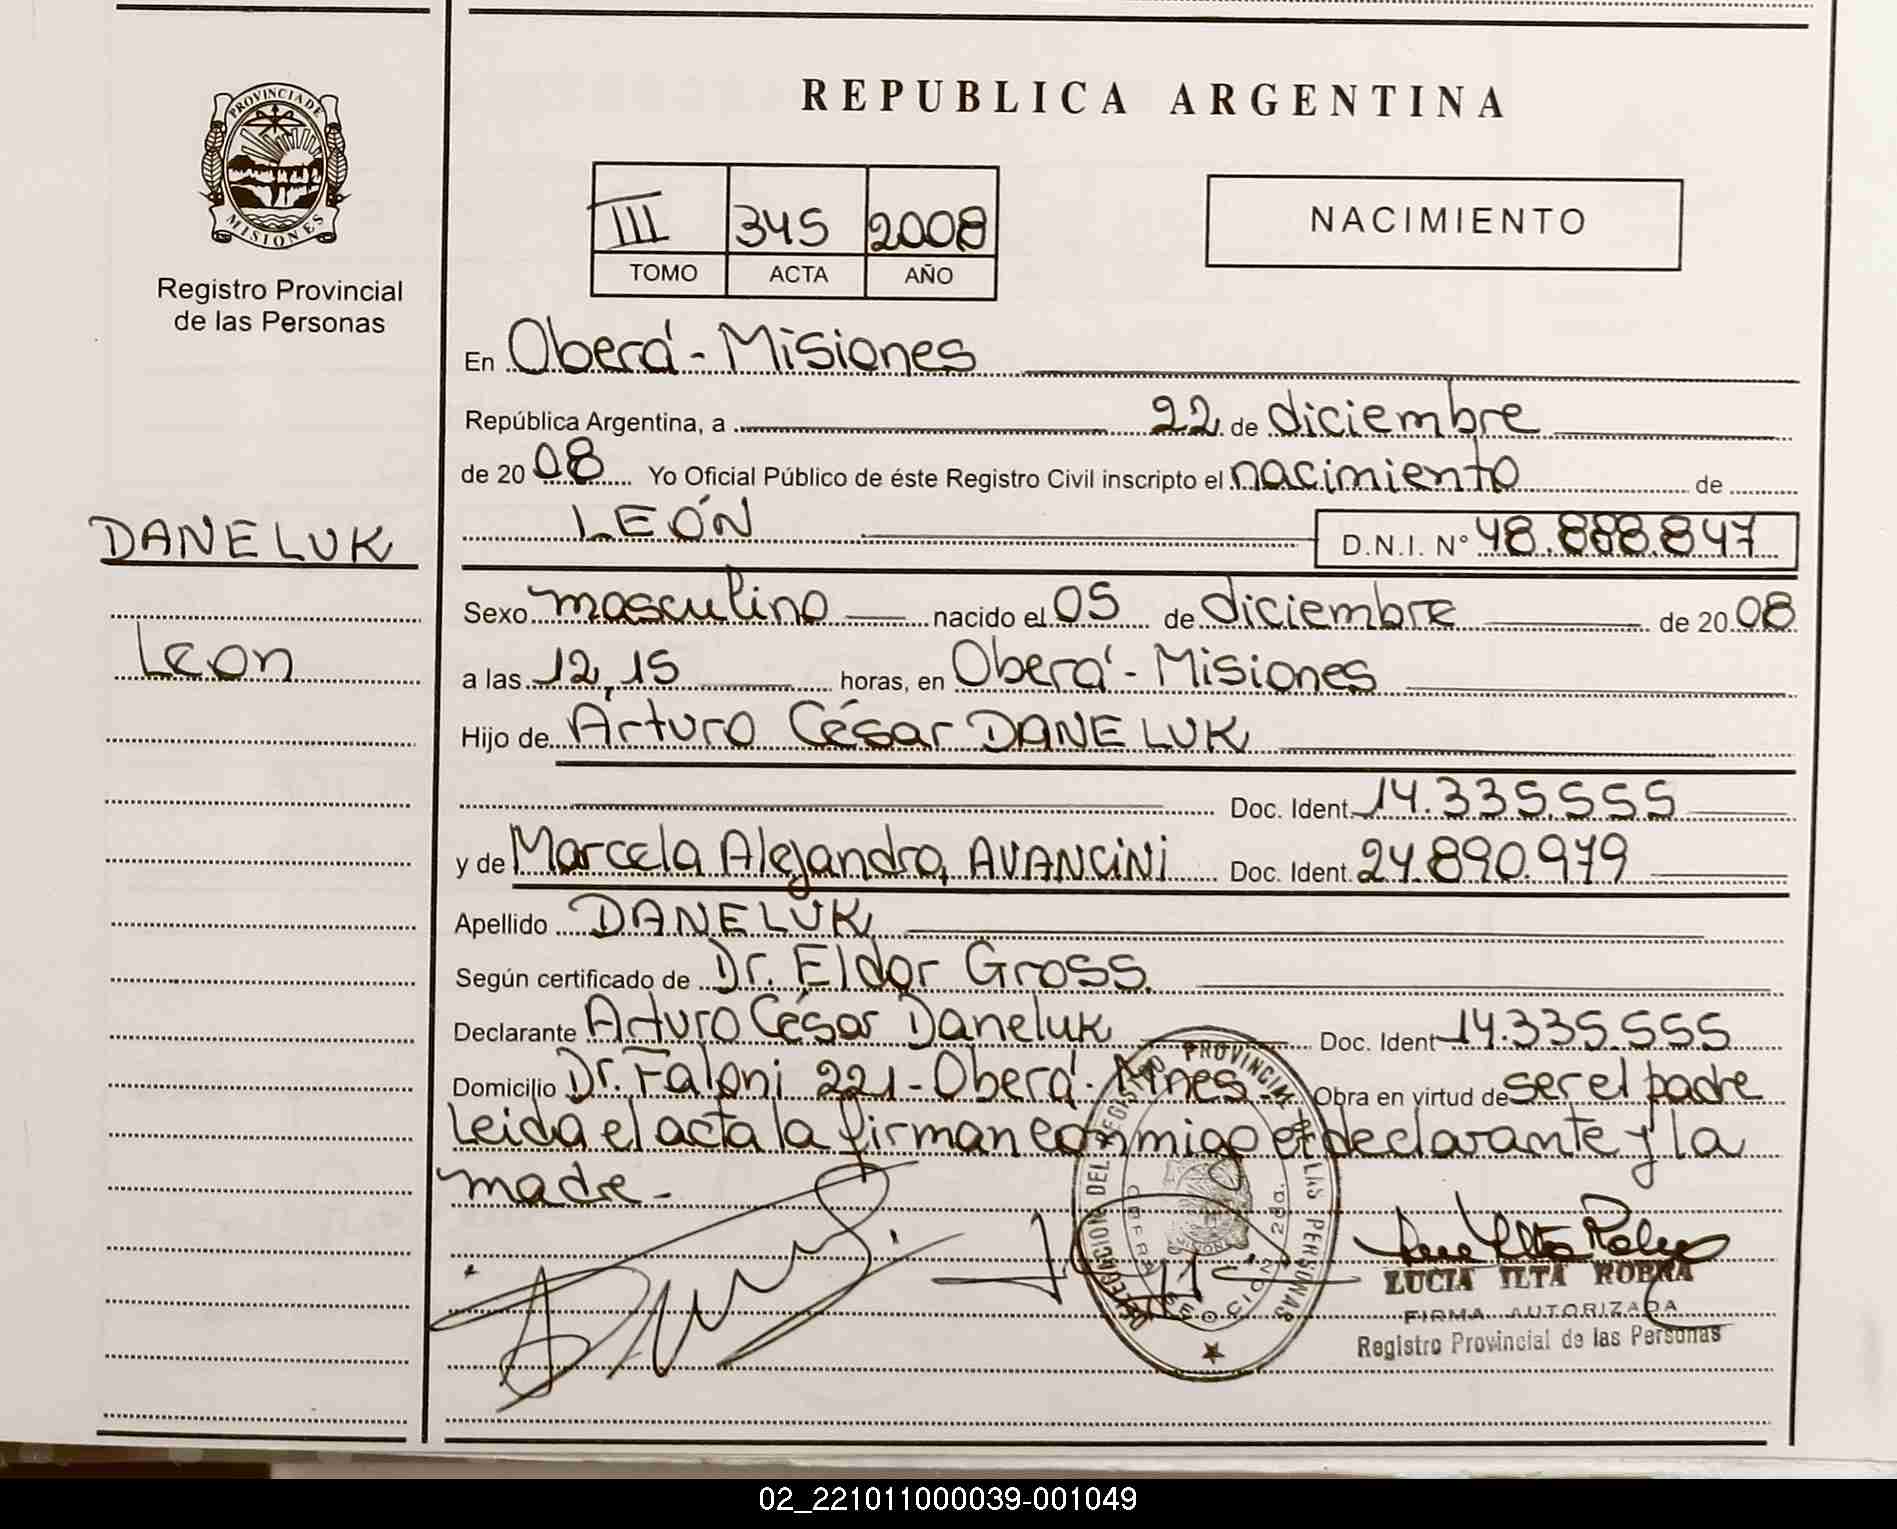 REPUBLICA ARGENTINA
PROVINCIA DE
MISIONES
Registro Provincial
de las Personas
III 345 2008
TOMO ACTA AÑO
NACIMIENTO
En Oberá - Misiones
República Argentina, a 22 de diciembre
de 2008 Yo Oficial Público de éste Registro Civil inscripto el nacimiento de
LEÓN D.N.I. N° 48.888.847
DANELUK
Leon
Sexo masculino nacido el 05 de diciembre de 2008
a las 12,15 horas, en Oberá - Misiones
Hijo de Arturo César DANELUK
Doc. Ident. 14.335.555
y de Marcela Alejandra AVANCINI Doc. Ident. 24.890.979
Apellido DANELUK
Según certificado de Dr. Eldor Gross.
Declarante Arturo César Daneluk Doc. Ident 14.335.555
Domicilio Dr. Faloni 221 - Oberá - Mnes. Obra en virtud de ser el padre
Leida el acta la firman conmigo el declarante y la
madre -
DELEGACION DEL REGISTRO PROVINCIAL DE LAS PERSONAS
OBERA SECCION 2da.
LUCIA ILTA ROBRA
FIRMA AUTORIZADA
Registro Provincial de las Personas
02_221011000039-001049